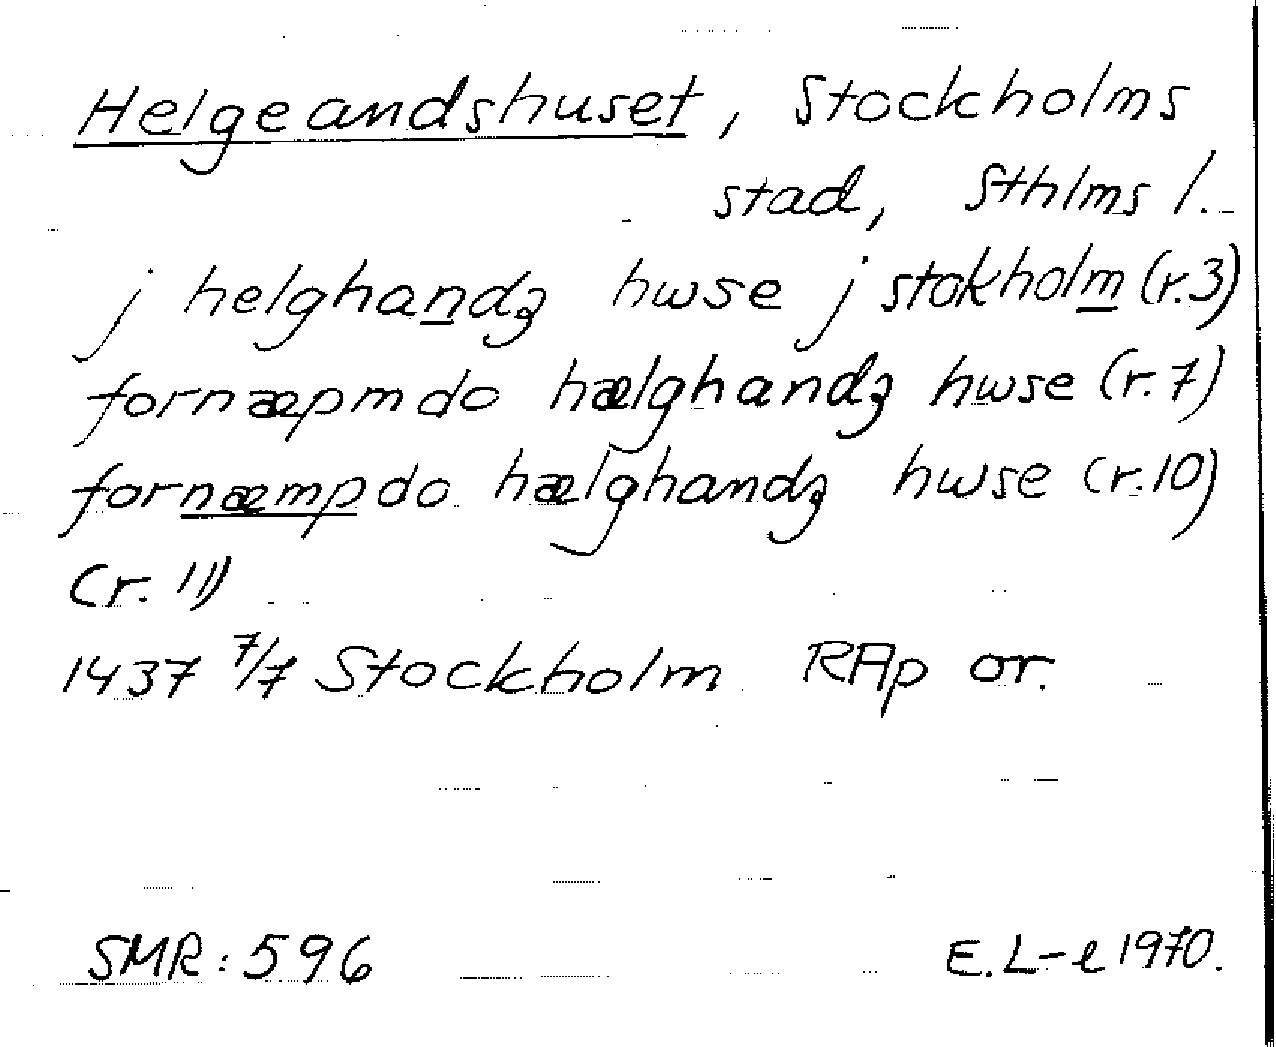 Helgeandshuset, Stockholms
stad, Sthlms l.
j helghandꝫ hwse j stokholm (r.3)
fornæpmdo hælghandꝫ hwse (r.7)
fornæmpdo hælghandꝫ hwse (r.10)
(r.11)
1437 7/7 Stockholm RAp or.
SMR: 596 E.L-e 1970.